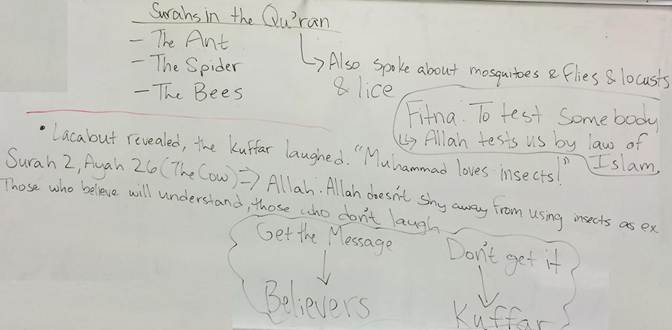 Surahs in the Qu'ran
- The Ant
- The Spider
- The Bees
↳ Also spoke about mosquitoes & flies & locusts
& lice
Fitna: To test somebody
↳ Allah tests us by law of
Islam
• Lacabut revealed, the Kuffar laughed. "Muhammad loves insects!"
Surah 2, Ayah 26 (The Cow) ⇒ Allah: Allah doesn't shy away from using insects as ex
Those who believe will understand, those who don't laugh
Get the Message
Don't get it
↓
↓
Believers
Kuffar